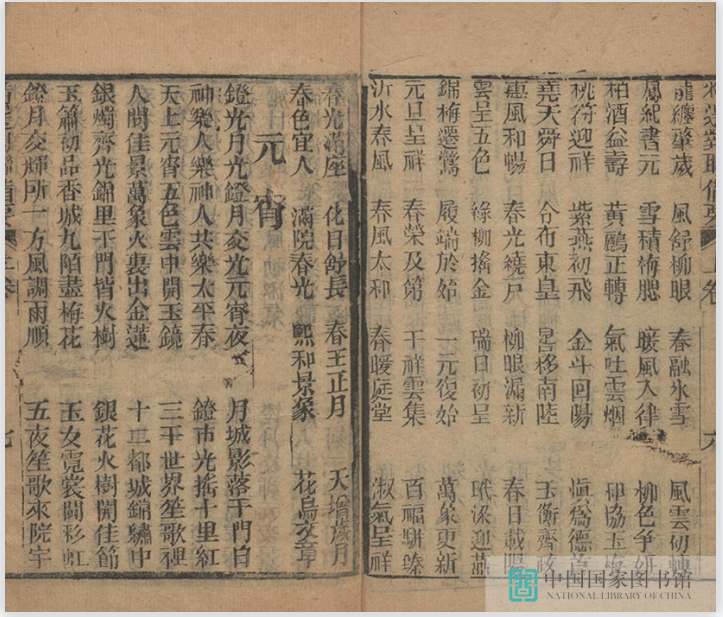 對聯備要 上卷 六
龍纏肇歲 風舒柳眼 春融氷雪 風雲初轉
鳳紀書元 雪積梅腮 暖風入律 柳色爭妍
柏酒益壽 黃鸝正轉 氣吐雲烟
桃符迎祥 紫燕初飛 金斗回陽
堯天舜日 令布東皇 晷移南陸 玉衡齊
惠風和暢 春光繞戶 柳眼漏新 春日載陽
雲呈五色 綠柳搖金 瑞日初呈 玳梁迎燕
錦梅遷鶯 履端於始 一元復始 萬象更新
元旦呈祥 春榮及第 千祥雲集 百福駢臻
沂水春風 春風太和 春暖庭堂 淑氣呈祥
春光滿座 化日舒長 春王正月 天增歲月
春色宜人 滿院春光 熙和景象 花鳥文章
元宵
鐙光月光鐙月交光元宵夜 月城影落千門白
神樂人樂神人共樂太平春 鐙市光搖十里紅
天上元宵五色雲中開玉鏡 三千世界笙歌裡
人間佳景萬象火裏出金蓮 十二都城錦繡中
銀燭齊光錦里千門皆火樹 銀花火樹開佳節
玉簫初品香城九陌盡梅花 玉女霓裳鬪彩虹
鐙月交輝所一方風調雨順 五夜笙歌來院宇
對聯備要 上卷 七
中国国家图书馆
NATIONAL LIBRARY OF CHINA